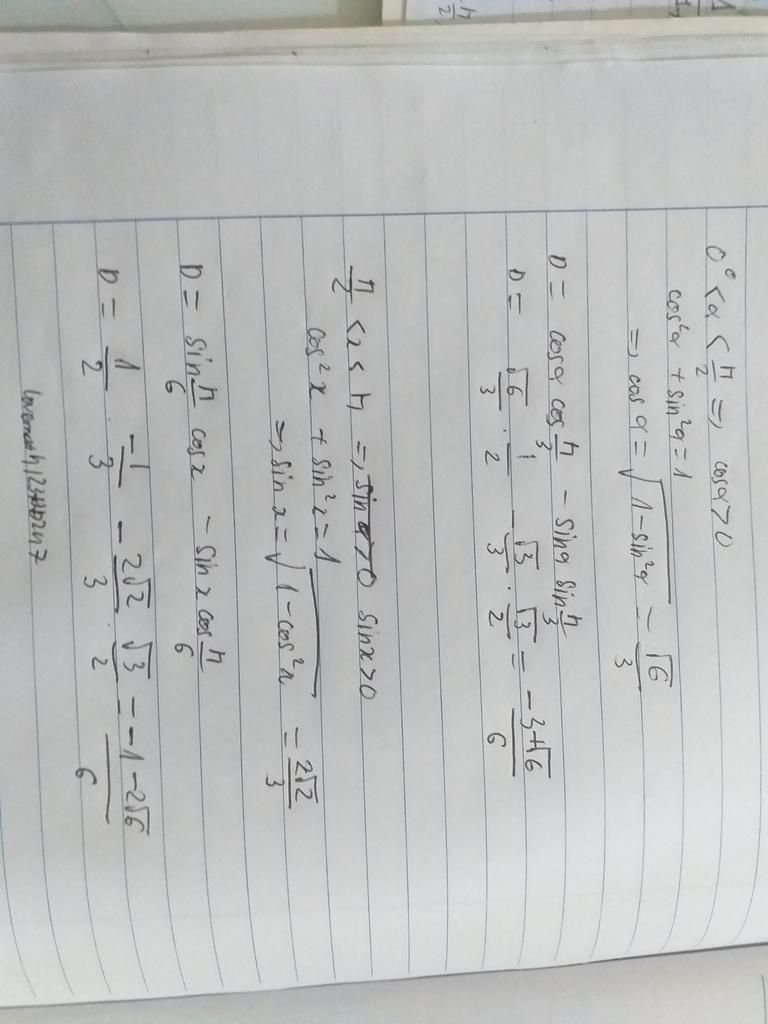 0° < α < π/2 ⇒ cosα > 0
cos²α + sin²α = 1
⇒ cos α = √(1 - sin²α) = √6/3
D = cosα cos π/3 - sinα sin π/3
D = √6/3 · 1/2 - √3/3 · √3/2 = (-3+√6)/6
π/2 < x < π ⇒ sin x > 0
cos²x + sin²x = 1
⇒ sin x = √(1 - cos²x) = 2√2/3
D = sin π/6 cos x - sin x cos π/6
D = 1/2 · -1/3 - 2√2/3 · √3/2 = (-1 - 2√6)/6